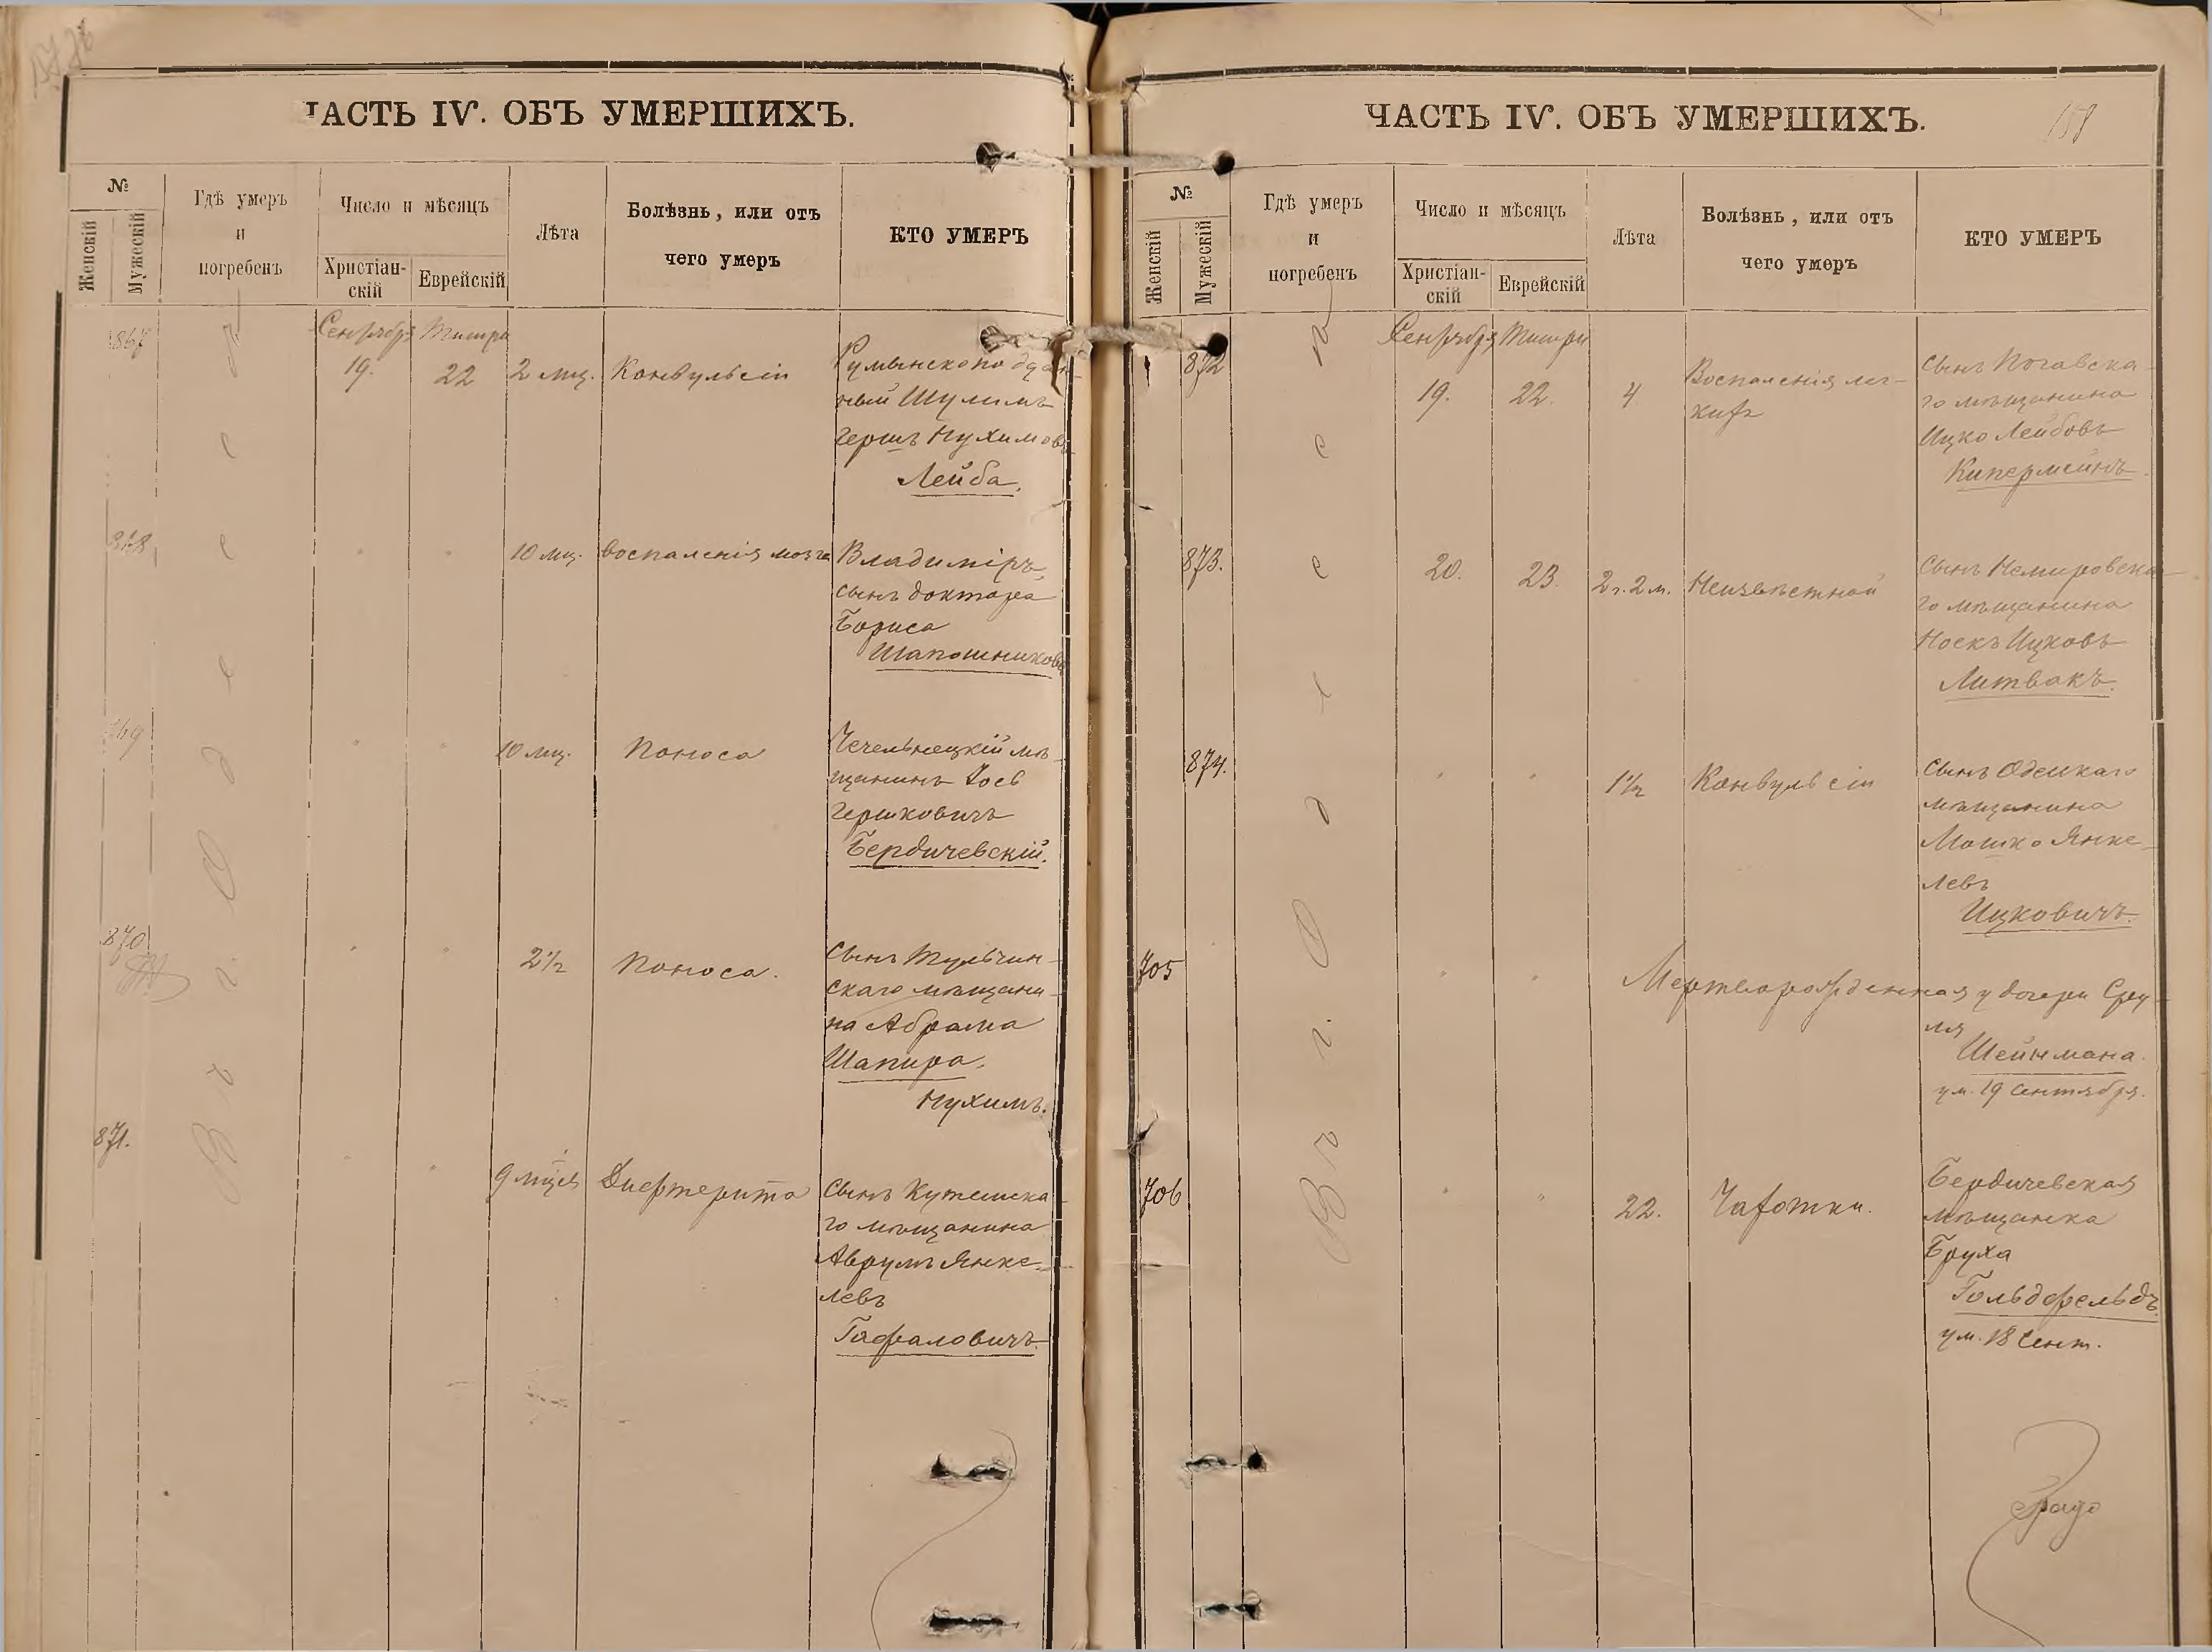 ЧАСТЬ IV. ОБЪ УМЕРШИХЪ.
№
Женскій
Мужескій
Гдѣ умеръ
и
погребенъ
Число и мѣсяцъ
Христіан-
скій
Еврейскій
Лѣта
Болѣзнь, или отъ
чего умеръ
КТО УМЕРЪ
Въ г. Одессѣ
867
Сентября Тишри
19. 22 2 мц. Конвульсіи
Румынскоподдан-
ный Шулимъ
Гершъ Нухимовъ
Лейба.
868
10 мц. воспаленія мозга
Владиміръ,
сынъ доктора
Бориса
Шапошникова
869
10 мц. Поноса
Чечельнецкій мѣ-
щанинъ Іосъ
Гершковичъ
Бердичевскій.
870
2½ Поноса.
Сынъ Тульчин-
скаго мѣщани-
на Абрама
Шапира,
Нухимъ.
871.
9 мцев Дифтерита
Сынъ
го мѣщанина
Аврумъ Янке-
левъ
Гафаловичъ.
ЧАСТЬ IV. ОБЪ УМЕРШИХЪ.
158
№
Женскій
Мужескій
Гдѣ умеръ
и
погребенъ
Число и мѣсяцъ
Христіан-
скій
Еврейскій
Лѣта
Болѣзнь, или отъ
чего умеръ
КТО УМЕРЪ
Въ г. Одессѣ
872
Сентября Тишри
19. 22. 4
Воспаленія лег-
кихъ
сынъ
го мѣщанина
Ицко Лейбовъ
Кипермейнъ.
873.
20. 23. 2 г. 2 м. Неизвѣстной
Сынъ Немировска-
го мѣщанина
Носкъ Ицковъ
Литвакъ.
874.
1½ Конвульсіи
Сынъ Одесскаго
мѣщанина
Мошко Янке-
левъ
Ицковичъ.
705
Мертворожденная у дочери Сру-
ля
Шейнмана.
ум. 19 Сентября.
706
22. Чахотки.
Бердичевская
мѣщанка
Бруха
Гольдфельдъ.
ум. 18 Сент.